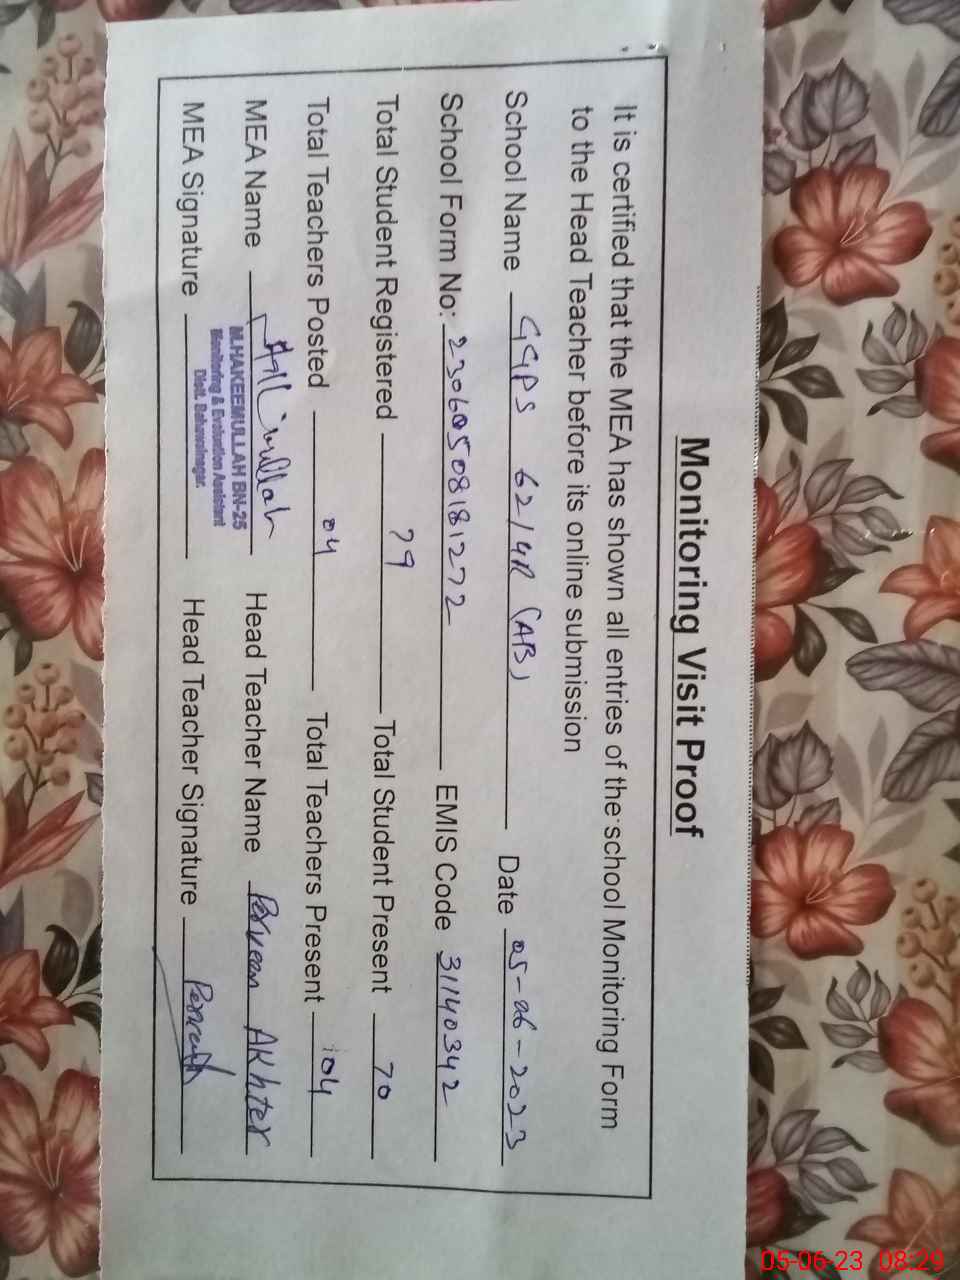 Monitoring Visit Proof
It is certified that the MEA has shown all entries of the school Monitoring Form
to the Head Teacher before its online submission
School Name GGPS 62/4R (AB) Date 05-06-2023
School Form No: 23060508181272 EMIS Code 31140342
Total Student Registered 79 Total Student Present 70
Total Teachers Posted 04 Total Teachers Present 04
MEA Name Head Teacher Name Perveen Akhter
M.HAKEEMULLAH BN-25
Monitoring & Evaluation Assistant
Distt. Bahawalnagar.
MEA Signature Head Teacher Signature
05-06-23 08:29